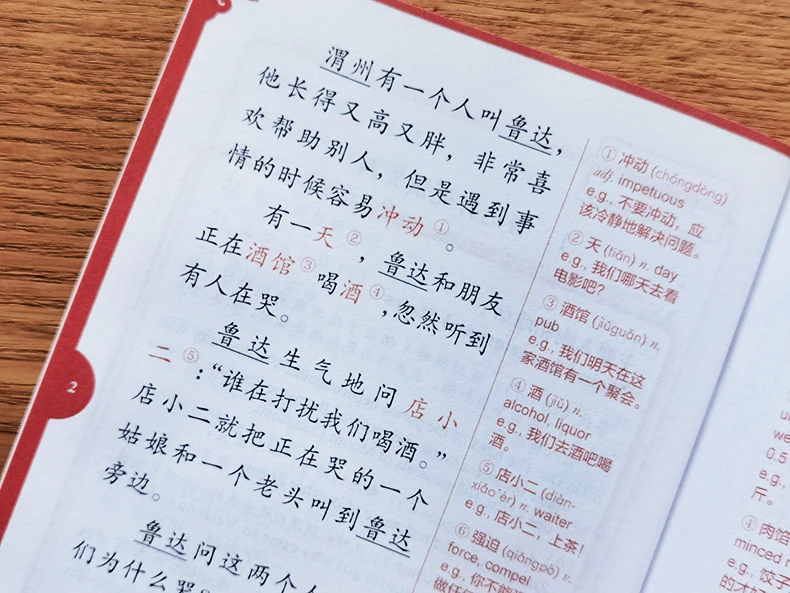 渭州有一个人叫鲁达，
他长得又高又胖，非常喜
欢帮助别人，但是遇到事
情的时候容易冲动①。
有一天②，鲁达和朋友
正在酒馆③喝酒④，忽然听到
有人在哭。
鲁达生气地问店小
二⑤：“谁在打扰我们喝酒。”
店小二就把正在哭的一个
姑娘和一个老头叫到鲁达
旁边。
鲁达问这两个人
们为什么哭
2
① 冲动 (chōngdòng)
adj. impetuous
e.g., 不要冲动，应
该冷静地解决问题。
② 天 (tiān) n. day
e.g., 我们哪天去看
电影吧？
③ 酒馆 (jiǔguǎn) n.
pub
e.g., 我们明天在这
家酒馆有一个聚会。
④ 酒 (jiǔ) n.
alcohol, liquor
e.g., 我们去酒吧喝
酒。
⑤ 店小二 (diàn-
xiǎo'èr) n. waiter
e.g., 店小二，上茶！
⑥ 强迫 (qiǎngpò) v.
force, compel
e.g., 你不能
做任
0.5
e.g.,
斤。
④ 肉馅
minced m
e.g., 饺子
的才好